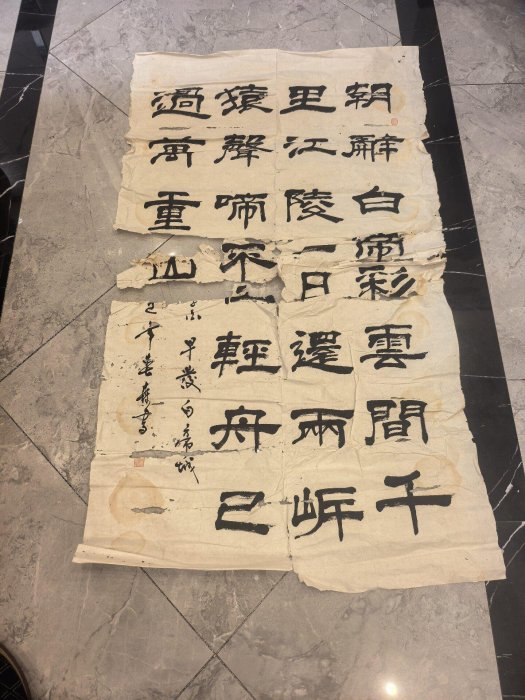 朝辭白帝彩雲間千
里江陵一日還兩岍
猿聲啼不止輕舟已
過萬重山
早發白帝城
書